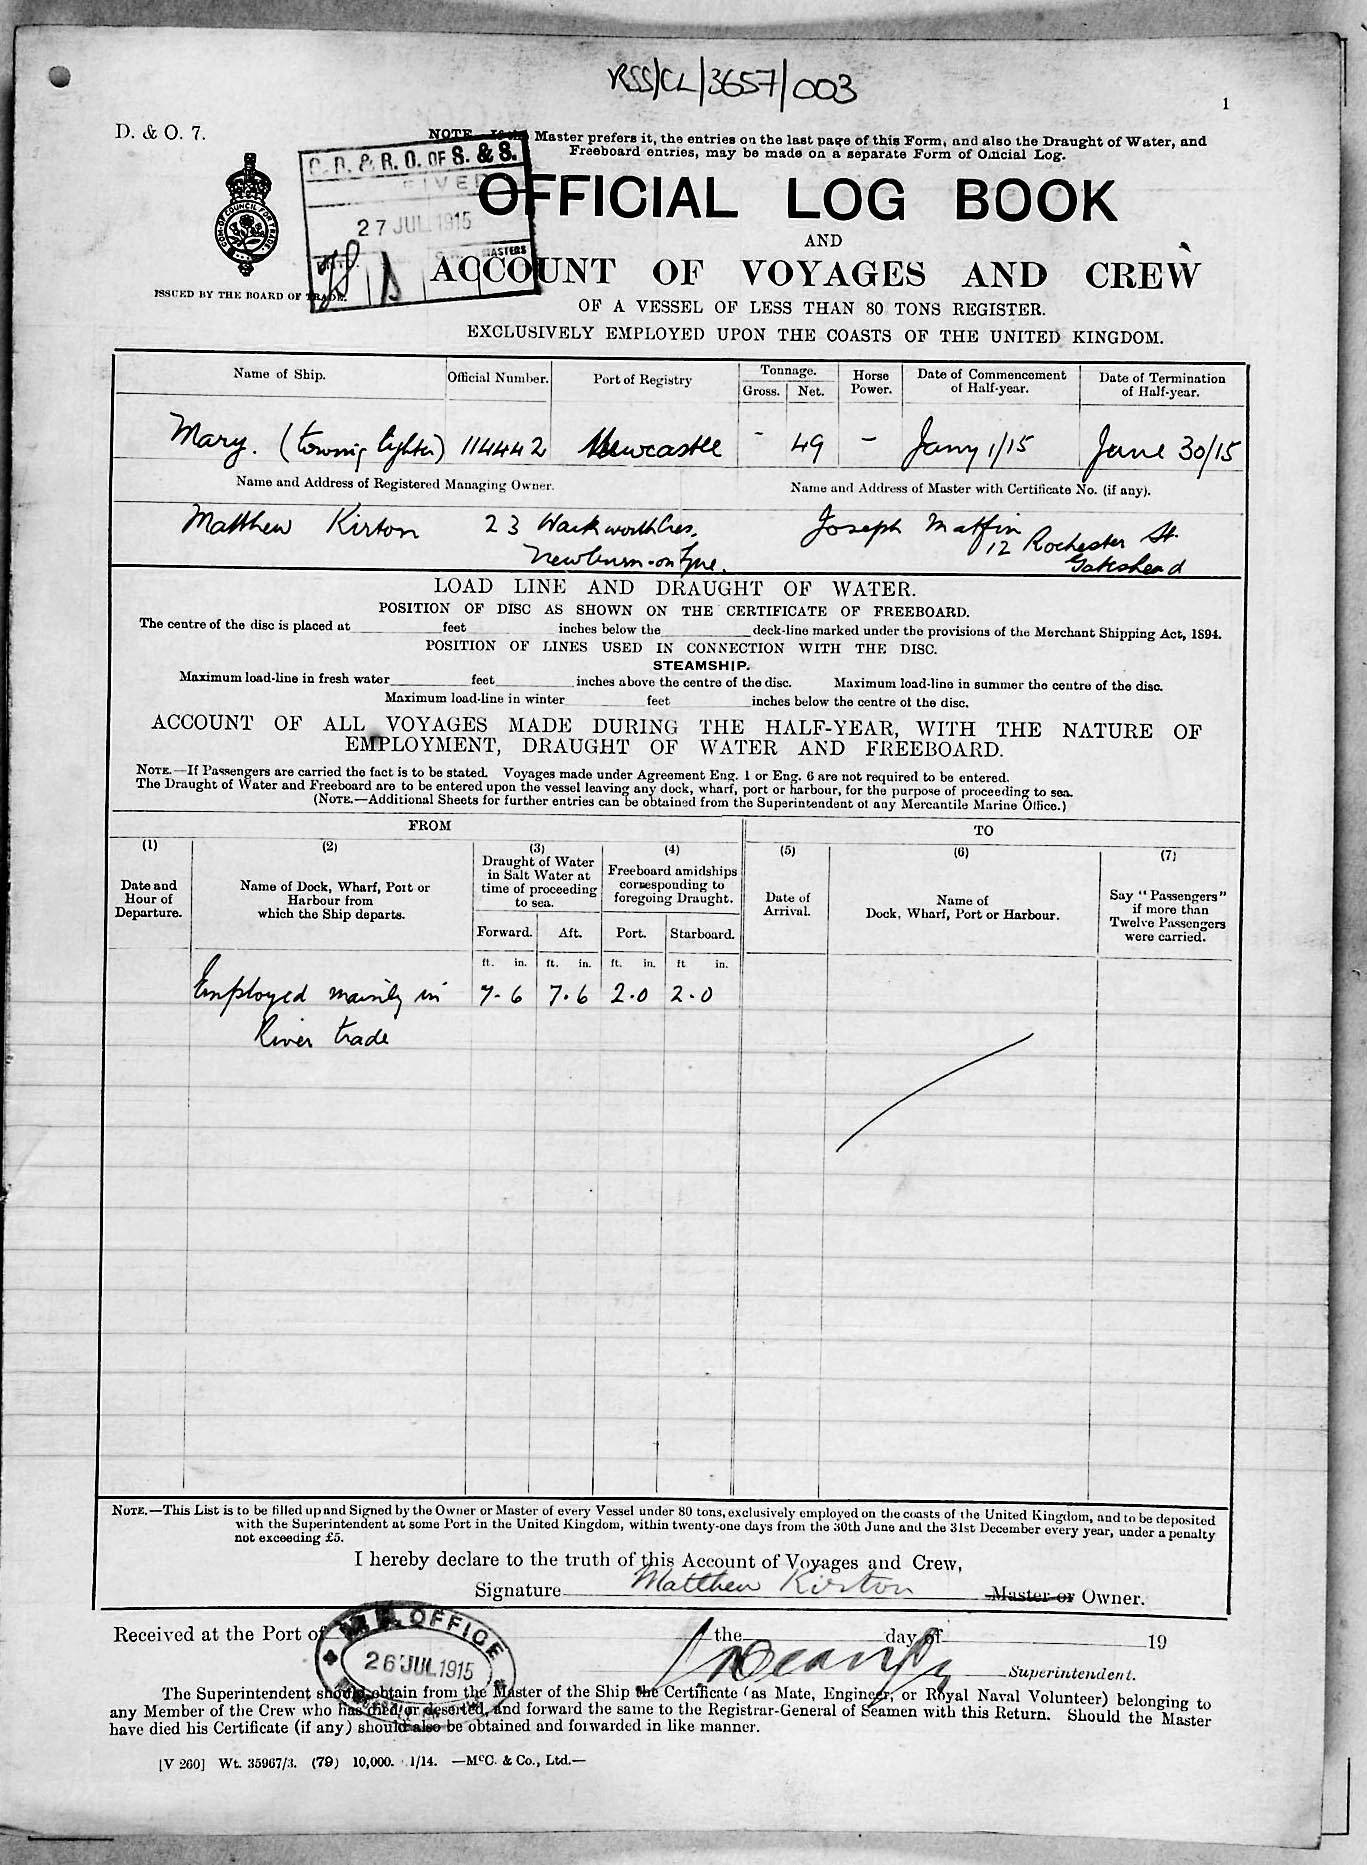 RSS/CL/3657/003
1
D. & O. 7.
NOTE.—If the Master prefers it, the entries on the last page of this Form, and also the Draught of Water, and
Freeboard entries, may be made on a separate Form of Official Log.
OF S. & S.
27 JUL 1915
MASTERS
OFFICIAL LOG BOOK
AND
ACCOUNT OF VOYAGES AND CREW
ISSUED BY THE BOARD OF TRADE.
OF A VESSEL OF LESS THAN 80 TONS REGISTER.
EXCLUSIVELY EMPLOYED UPON THE COASTS OF THE UNITED KINGDOM.
Name of Ship. Official Number. Port of Registry Tonnage. Gross. Net. Horse Power. Date of Commencement of Half-year. Date of Termination of Half-year.
Mary. (towing lighter) 114442 Newcastle - 49 - Jany 1/15 June 30/15
Name and Address of Registered Managing Owner. Name and Address of Master with Certificate No. (if any).
Matthew Kirton 23 Warkworth Cres. Joseph Maffin
Newburn-on-Tyne. 12 Rochester St.
Gateshead
LOAD LINE AND DRAUGHT OF WATER.
POSITION OF DISC AS SHOWN ON THE CERTIFICATE OF FREEBOARD.
The centre of the disc is placed at feet inches below the deck-line marked under the provisions of the Merchant Shipping Act, 1894.
POSITION OF LINES USED IN CONNECTION WITH THE DISC.
STEAMSHIP.
Maximum load-line in fresh water feet inches above the centre of the disc. Maximum load-line in summer the centre of the disc.
Maximum load-line in winter feet inches below the centre of the disc.
ACCOUNT OF ALL VOYAGES MADE DURING THE HALF-YEAR, WITH THE NATURE OF
EMPLOYMENT, DRAUGHT OF WATER AND FREEBOARD.
NOTE.—If Passengers are carried the fact is to be stated. Voyages made under Agreement Eng. 1 or Eng. 6 are not required to be entered.
The Draught of Water and Freeboard are to be entered upon the vessel leaving any dock, wharf, port or harbour, for the purpose of proceeding to sea.
(NOTE.—Additional Sheets for further entries can be obtained from the Superintendent of any Mercantile Marine Office.)
FROM TO
(1) (2) (3) (4) (5) (6) (7)
Date and Hour of Departure.
Name of Dock, Wharf, Port or Harbour from which the Ship departs.
Draught of Water in Salt Water at time of proceeding to sea.
Freeboard amidships corresponding to foregoing Draught.
Date of Arrival.
Name of Dock, Wharf, Port or Harbour.
Say "Passengers" if more than Twelve Passengers were carried.
Forward. Aft. Port. Starboard.
ft. in. ft. in. ft. in. ft in.
Employed mainly in 7-6 7.6 2.0 2.0
River trade
NOTE.—This List is to be filled up and Signed by the Owner or Master of every Vessel under 80 tons, exclusively employed on the coasts of the United Kingdom, and to be deposited
with the Superintendent at some Port in the United Kingdom, within twenty-one days from the 30th June and the 31st December every year, under a penalty
not exceeding £5.
I hereby declare to the truth of this Account of Voyages and Crew,
Signature Matthew Kirton Master or Owner.
Received at the Port of the day of 19
Superintendent.
OFFICE
26 JUL 1915
The Superintendent should obtain from the Master of the Ship the Certificate (as Mate, Engineer, or Royal Naval Volunteer) belonging to
any Member of the Crew who has died or deserted, and forward the same to the Registrar-General of Seamen with this Return. Should the Master
have died his Certificate (if any) should also be obtained and forwarded in like manner.
[V 260] Wt. 35967/3. (79) 10,000. 1/14. —McC. & Co., Ltd.—